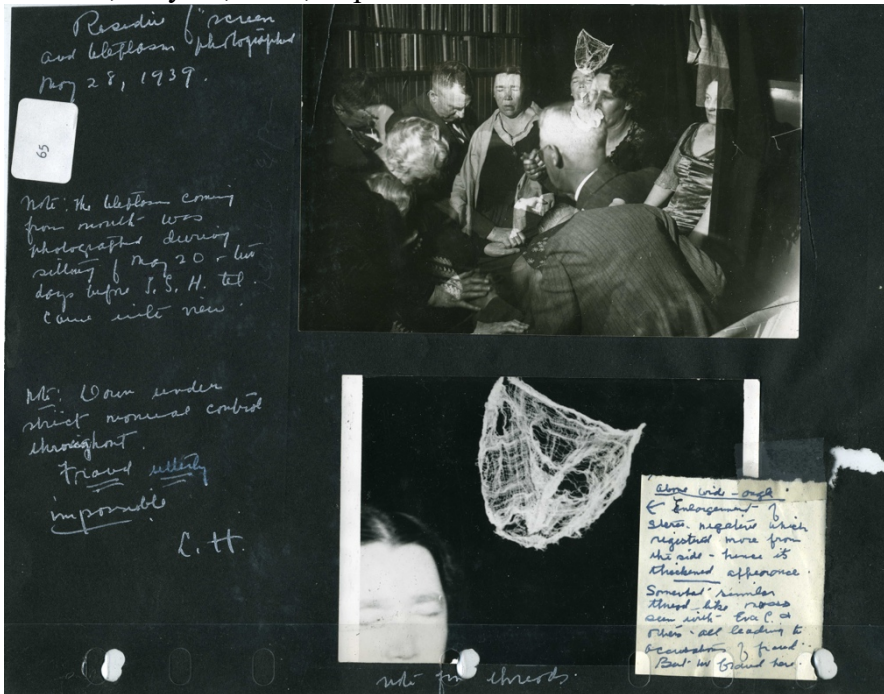 Residue of "screen
and teleplasm photographed
May 28, 1939.
65
Note: the teleplasm coming
from mouth was
photographed during
sitting of May 20 - two
days before S. S. H. tel.
came into view.
Note: Dawn under
strict manual control
throughout.
Fraud utterly
impossible
L. H.
Above wide-angle.
← Enlargement of
stereo. negative which
registered more from
the side - hence its
thickened appearance.
Somewhat similar
thread-like masses
seen with Eva C. &
others - all leading to
accusations of fraud.
But no fraud here.
note fine threads.